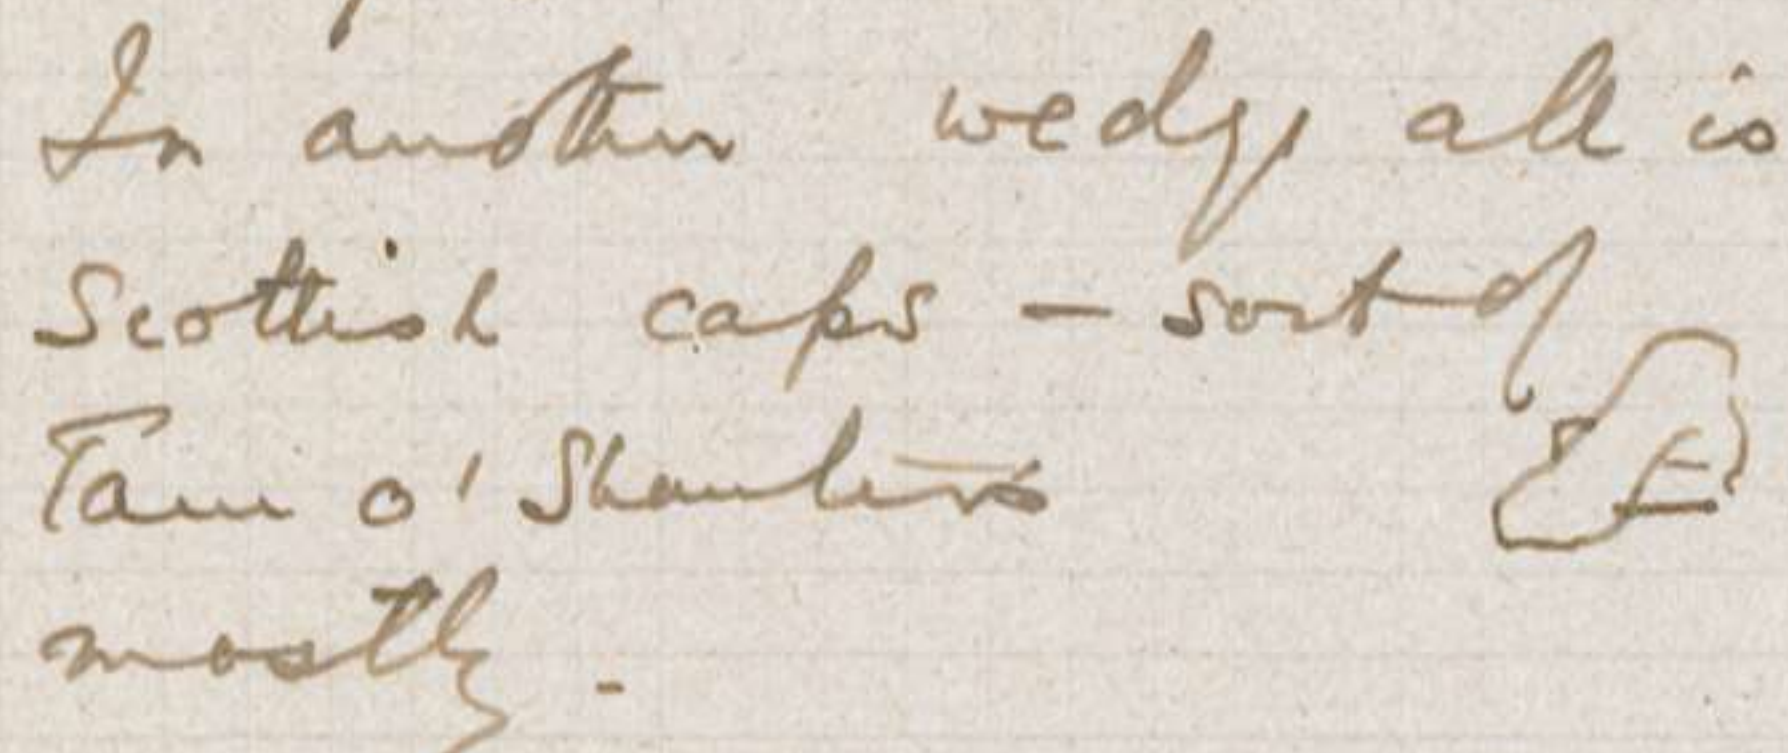 In another wedge all is
Scottish caps – sort of
Tam o' Shanters
mostly.